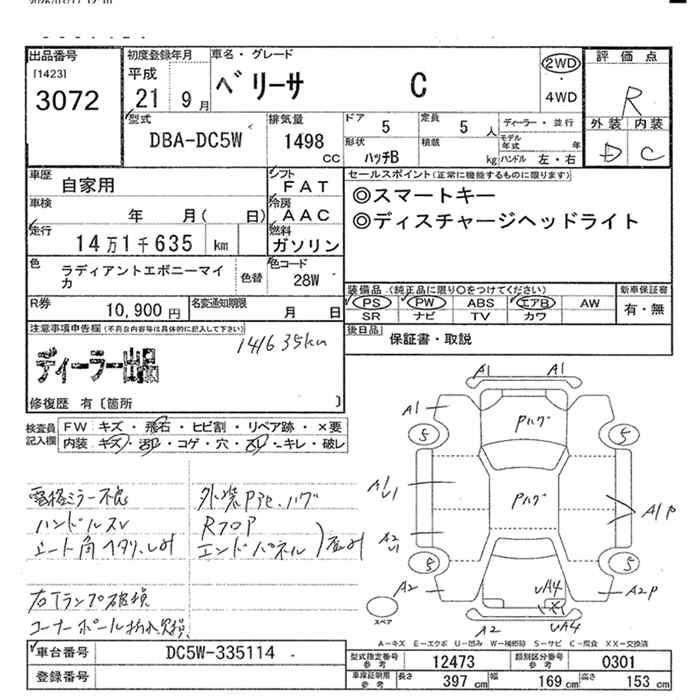 出品番号
[1423]
3072
初度登録年月
平成
21 9月
車名・グレード
ベリーサ C
2WD
・
4WD
評価点
R
外装 内装
D C
型式
DBA-DC5W
排気量
1498
CC
ドア
5
定員
5人
形状
ハッチB
積載
kg
ディーラー・並行
モデル年式 年
ハンドル 左・右
車歴
自家用
シフト
FAT
車検
年 月( 日)
冷房
AAC
走行
14万1千635 km
燃料
ガソリン
セールスポイント(正常に機能するものに限ります)
◎スマートキー
◎ディスチャージヘッドライト
色
ラディアントエボニーマイカ
色替
色コード
28W
装備品(純正品に限り○をつけてください)
PS PW ABS エアB AW
SR ナビ TV カワ
新車保証書
有・無
R券
10,900 円
名変通知期限
月 日
後日品
保証書・取説
注意事項申告欄(不具合内容等は具体的に記入して下さい)
141635km
ディーラー出品
修復歴 有〔箇所 〕
検査員記入欄
FW キズ・飛石・ヒビ割・リペア跡・×要
内装 キズ・・コゲ・穴・・キレ・破レ
電格ミラー不良
ハンドルスレ
シート角ヘタリ、しみ
右Tランプ破損
コーナーポール折れ欠損
外装Pムラ、ハゲ
RフロP
エンドパネル
A1 A1
A1
Pハゲ
5 5
A1
U1
Pハゲ
A1P
A2
U1
5 5
A2
A2P
UA4
X1
A2
UA4
スペア
A-キズ E-エクボ U-凹み W-補修跡 S-サビ C-腐食 XX-交換済
車台番号
DC5W-335114
登録番号
型式指定番号
参考
12473
類別区分番号
参考
0301
車庫証明用
参考
長さ 397 cm
幅 169 cm
高さ 153 cm